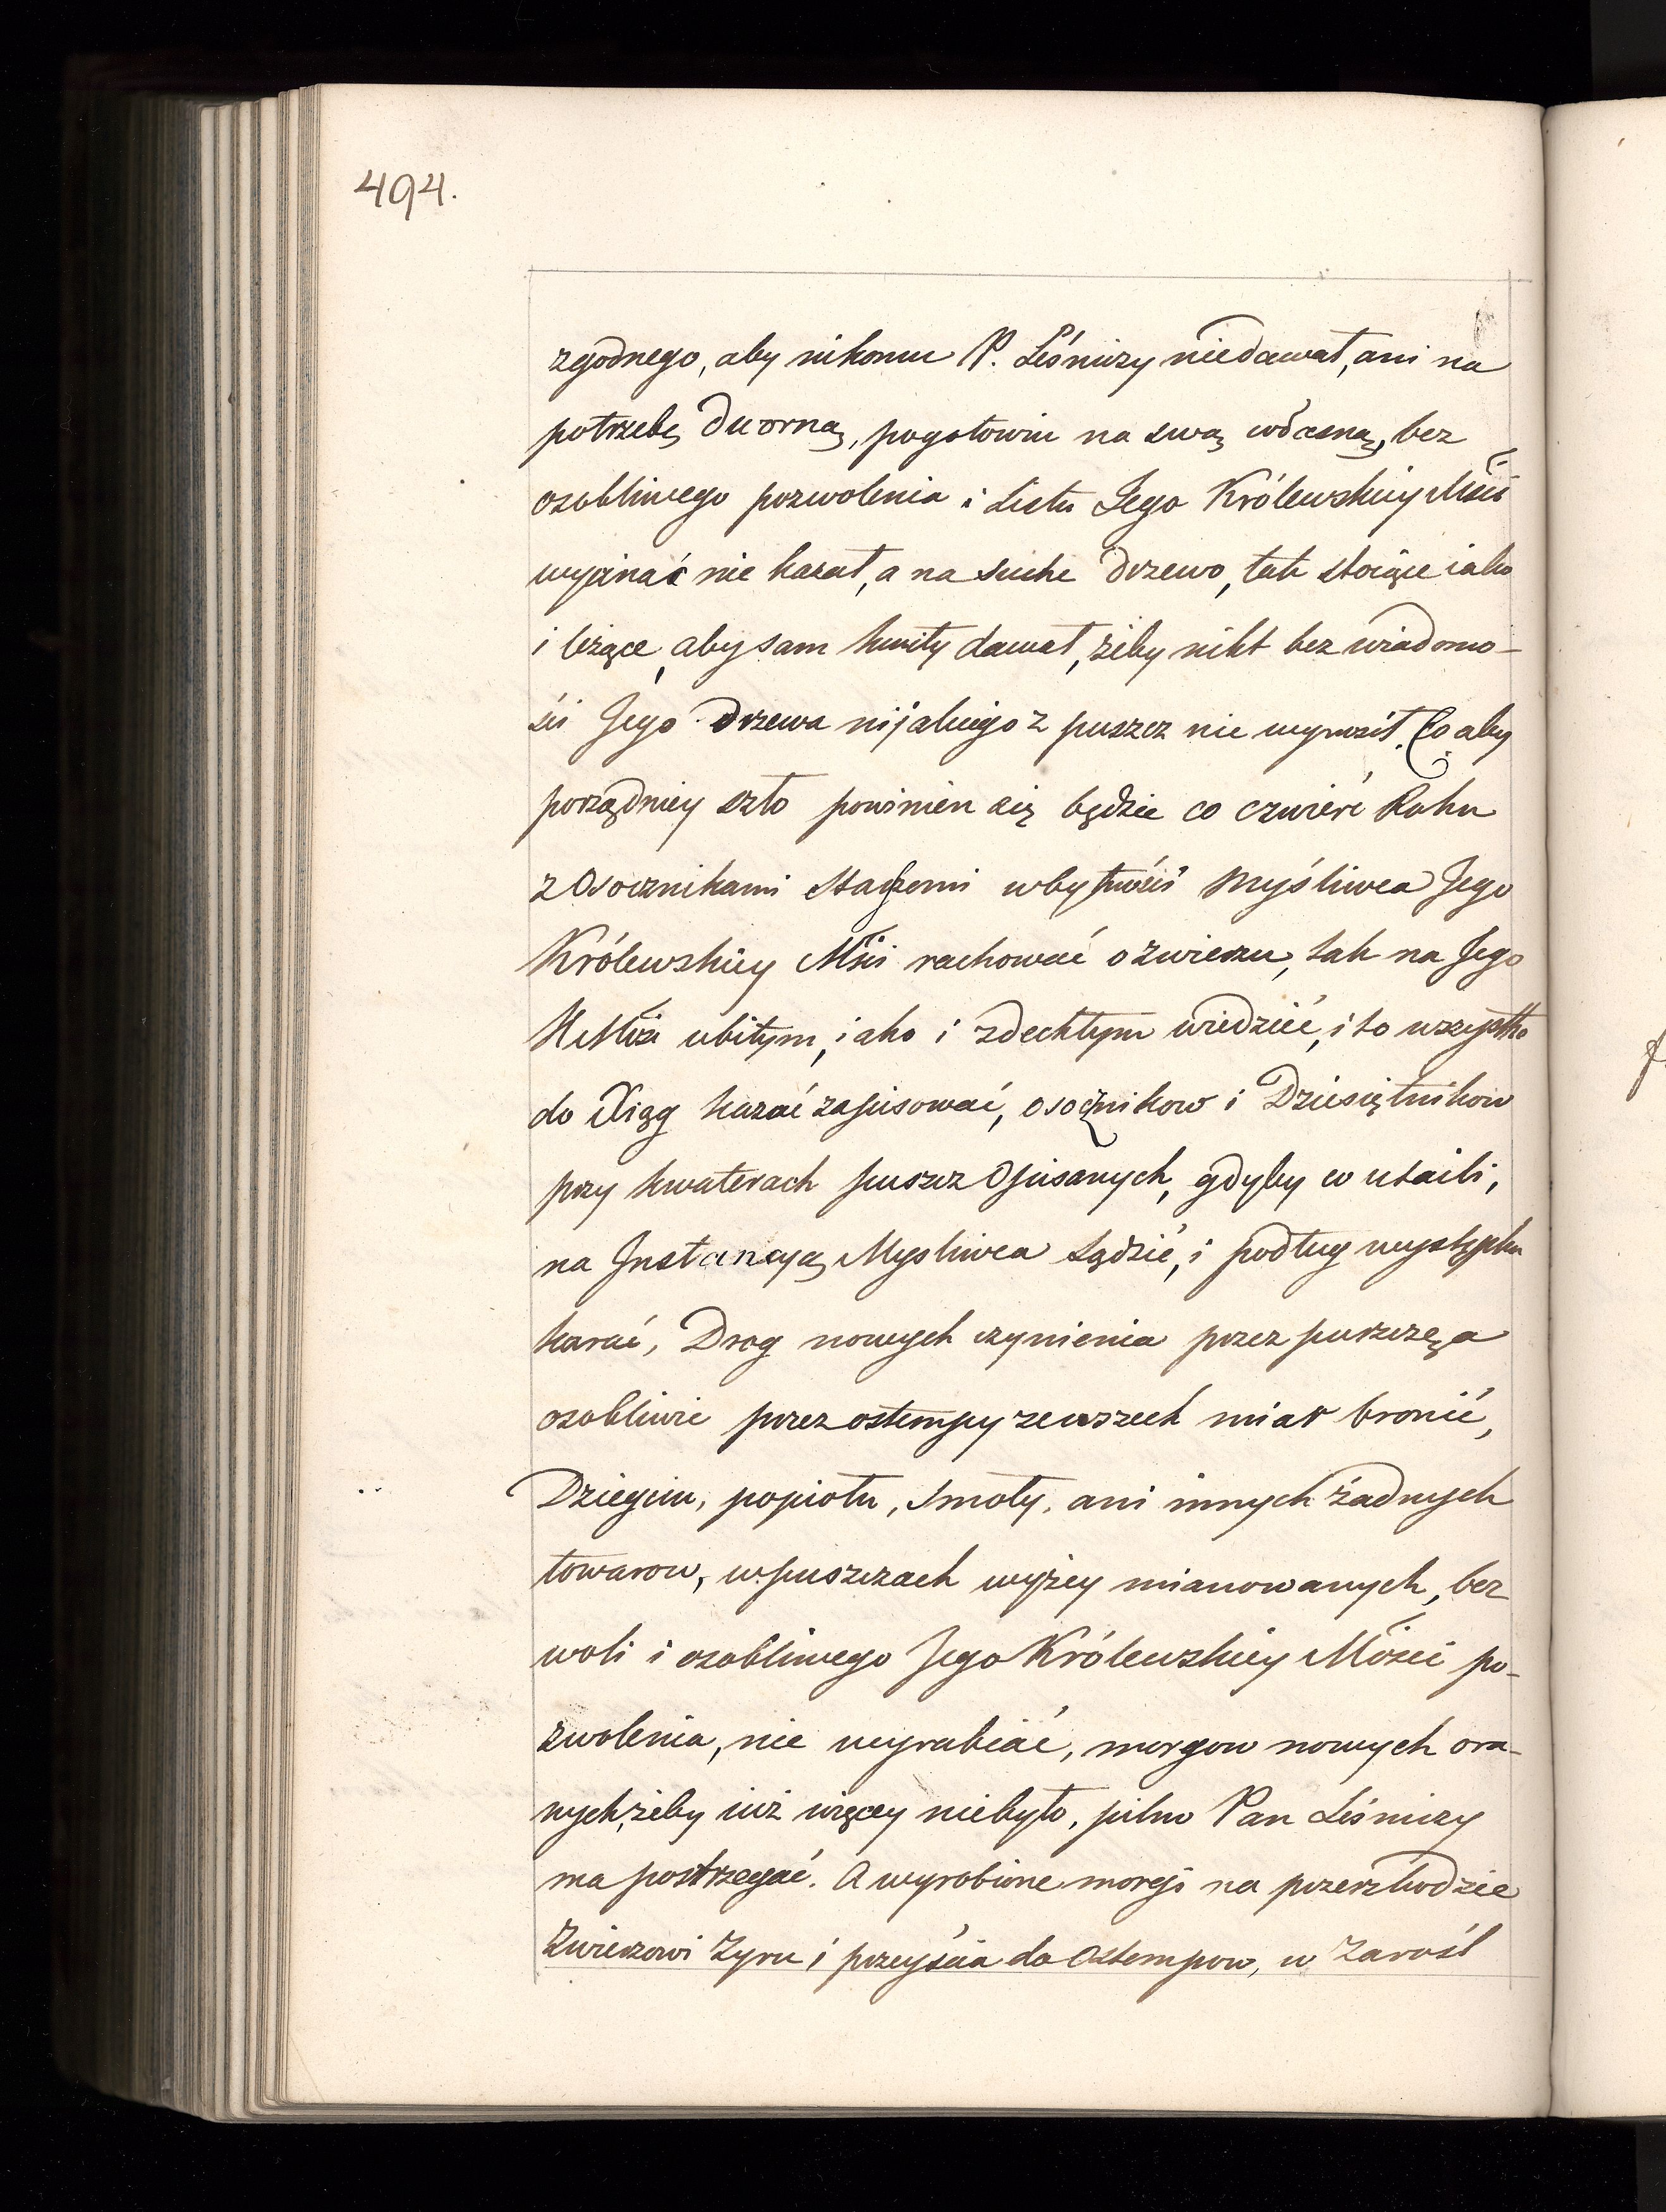 494.
zgodnego, aby nikomu P. Leśniczy niedawał, ani na
potrzebę dworną, pogotowiu na swą własną, bez
osobliwego pozwolenia i Listu Jego Królewskiey Mści
wycinać nie kazał, a na suche drzewo, tak stoiące iako
i leżące, aby sam kwity dawał, żeby nikt bez wiadomo-
ści Jego drzewa nijakiego z puszcz nie wywoził. Co aby
porządniey szło powinien się będzie co czwierć Roku
z Osocznikami Starszemi w bytności Myśliwca Jego
Królewskiey Mści rachować o zwierzu, tak na Jego
KMści ubitym, iako i zdechłym wiedzieć, i to wszystko
do Xiąg kazać zapisować, osocznikow i Dziesiętnikow
przy kwaterach puszcz Opisanych, gdyby co utaili,
na Instancyą Mysliwca Sądzić, i podług występku
karać, Drog nowych czynienia przez puszczę, a
osobliwie przez ostempy zewszech miar bronić,
Dziegciu, popiołu, Smoły, ani innych żadnych
towarow, w puszczach wyżey mianowanych, bez
woli i osobliwego Jego Królewskiey Mości po-
zwolenia, nie wyrabiać, morgow nowych ora-
nych, żeby iuż więcey niebyło, pilno Pan Leśniczy
ma postrzegać. A wyrobione morgi na przeszkodzie
Zwierzowi Zyru i przeyścia do Ostempow, w Zarośl